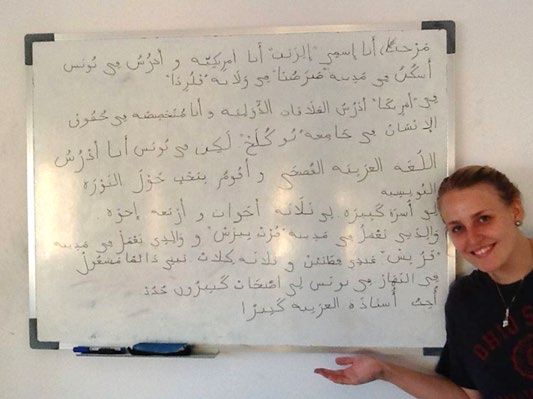 مَرْحَبًا، أنا إسمي "إلزَبِث" أنا أمرِيكِيّة و أدْرُسُ في تونس
أسْكُنُ في مدينة "سَرَسُتا" في ولاية "فلُرِدا"
في "أمرِيكا" أدْرُسُ العَلاقات الدَّوْلية و أنا مُتَخَصِصة في حُقوق
الإنْسان في جامعة لَكِن في تونس أنا أدْرُسُ
اللُّغة العربية الفُصْحَى و أقومُ ببَحْث حَوْلَ الثَوْرة
التونِسية
لي أسْرة كَبيرة لي ثَلاثة أخَوات و أرْبعة إخوة
وَالدَتي تَعْمَلُ في مَدينة و وَالِدي يَعْمَلُ في مدينة
عِنْدي قِطَّتَيْن و ثَلاثة كِلاب دائما مَشْغول
في النَّهار في تونس لي أصْحاب كَثيرون جُدُد
أُحِبُّ أُسْتاذة العربية كَثيرًا
OHIO S